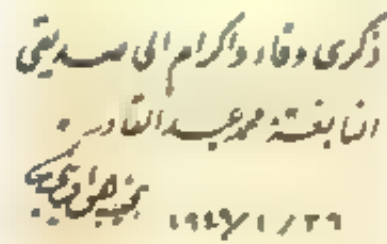 ذكرى وفاء واكرام الى صديقى
النابغة محمد عبد القادر
١٩٤٩/١/٢٩